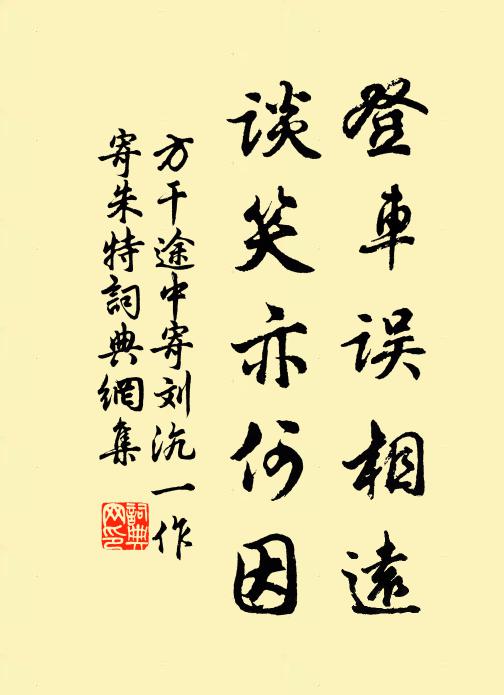 登車误相遠
谈笑亦何因
方干途中寄刘沆一作
寄朱特詞典網集
詞典
网印